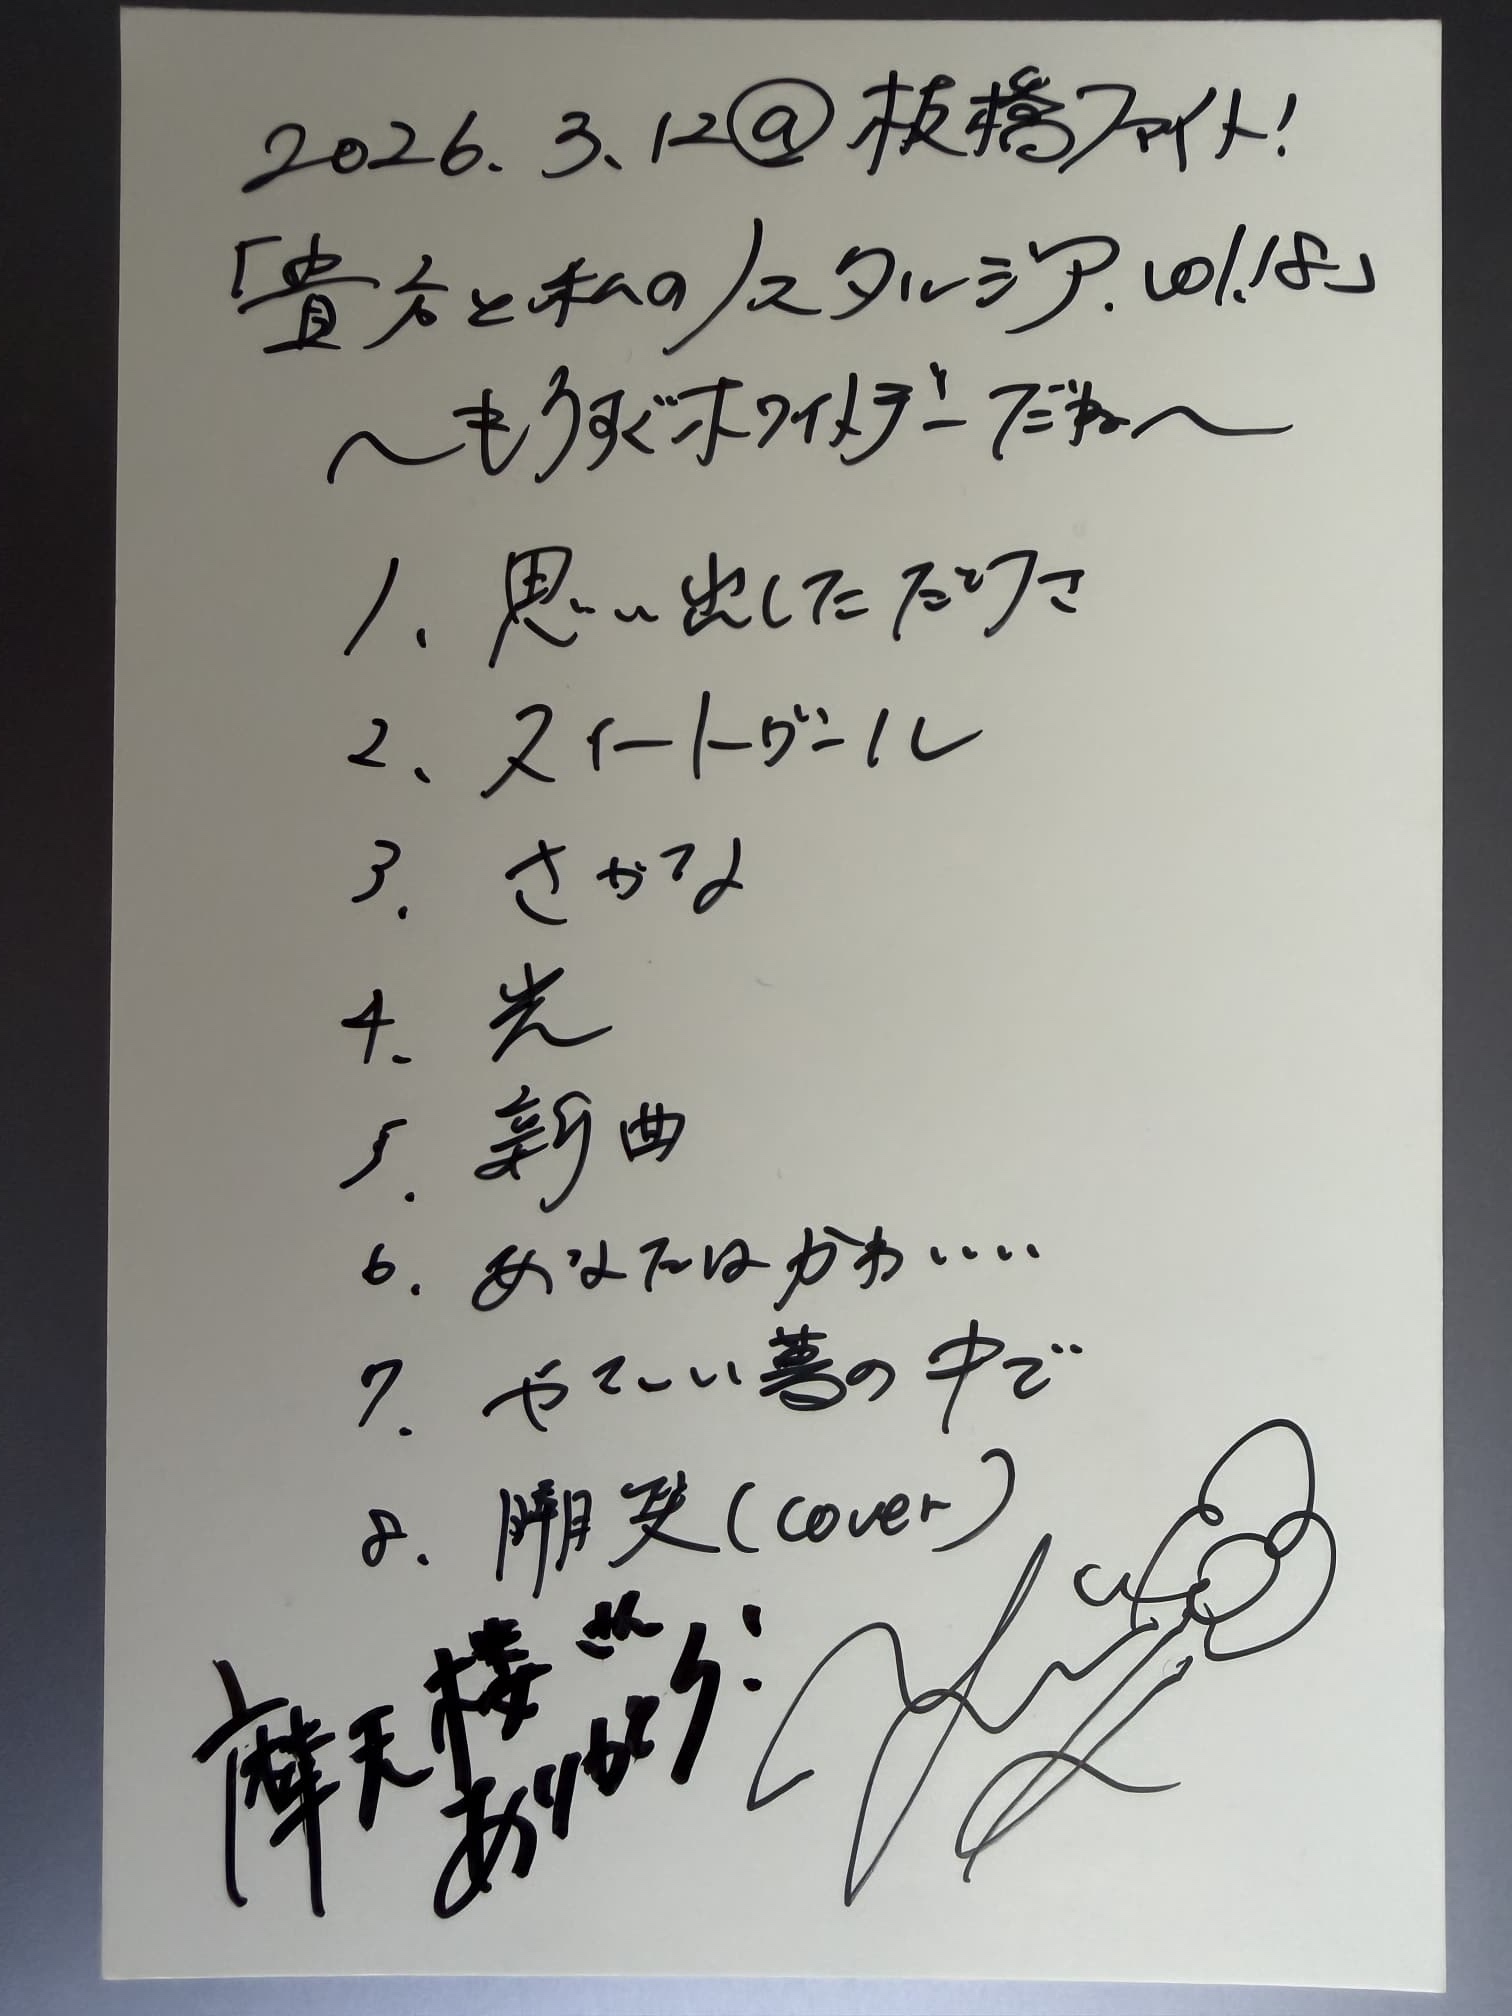 2026.3.12@板橋ファイト!
「貴方と私のノスタルジア.vol.18」
〜もうすぐホワイトデーだね〜
1. 思い出しただけさ
2. スイートガール
3. さかな
4. 光
5. 新曲
6. あなたはかわいい...
7. やさしい夢の中で
8. (cover)
摩天楼さん
ありがとう!